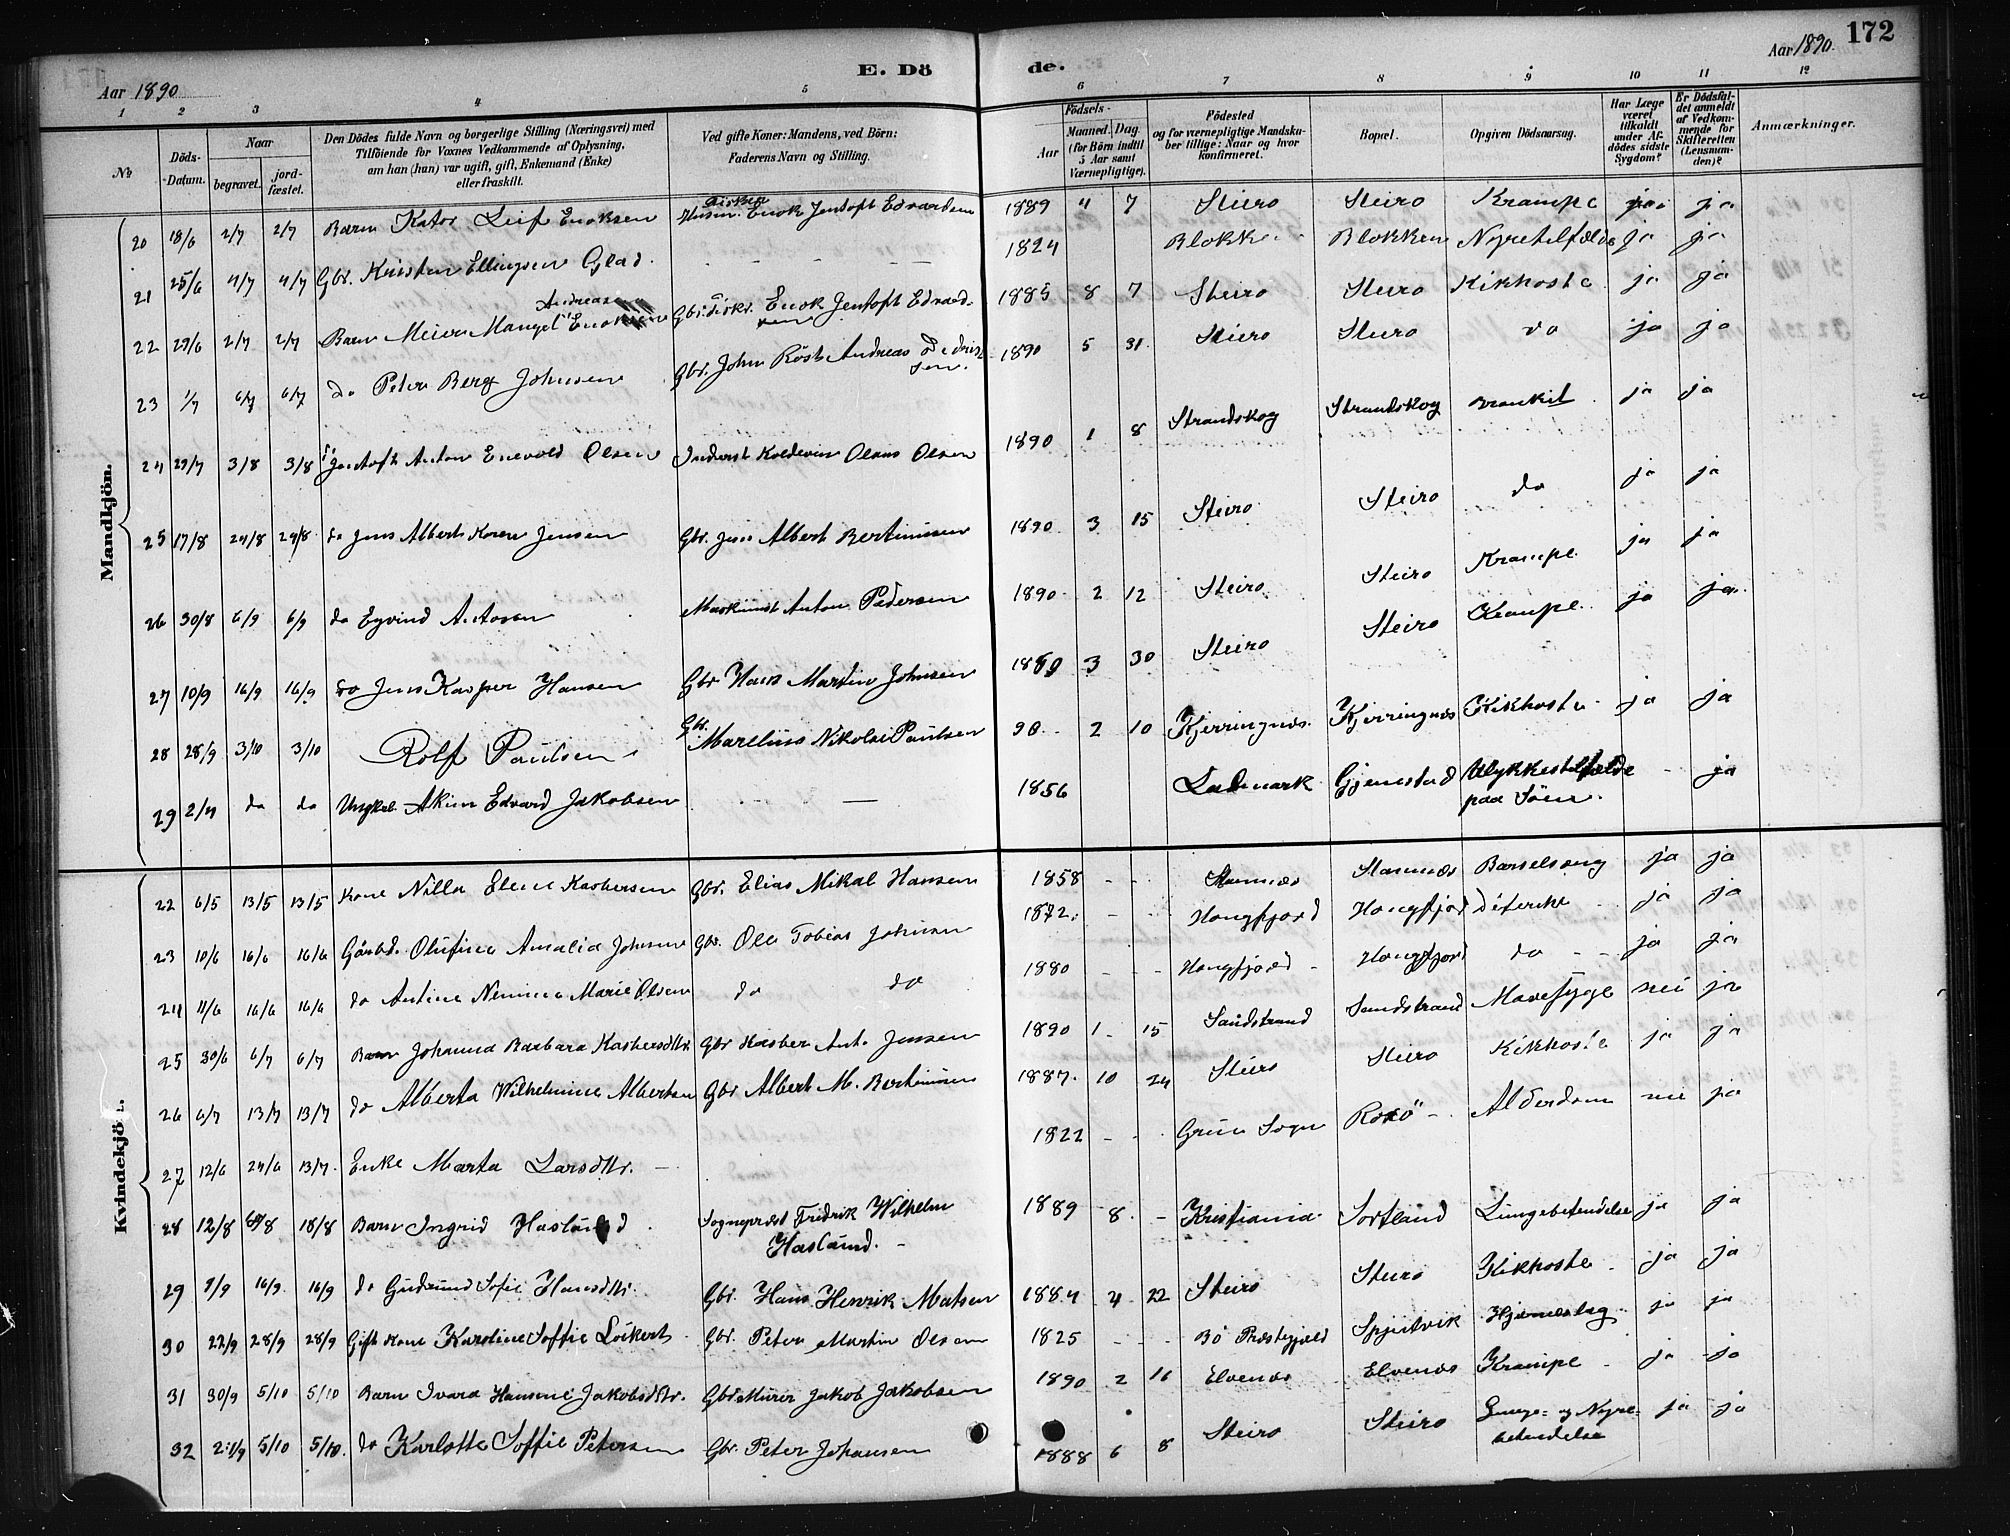 172
Aar 1890
E. Dö
de.
Aar 1890.
1 2 3 4 5 6 7 8 9 10 11 12
No
Döds-Datum.
Naar
begravet.
jord-fæstet.
Den Dödes fulde Navn og borgerlige Stilling (Næringsvei) med
Tilföiende for Voxnes Vedkommende af Oplysning,
om han (hun) var ugift, gift, Enkemand (Enke)
eller fraskilt.
Ved gifte Koner: Mandens, ved Börn:
Faderens Navn og Stilling.
Födsels-
Aar
Maaned. Dag
(for Börn indtil
5 Aar samt
Værnepligtige).
Födested
og for værnepligtige Mandska-
ber tillige: Naar og hvor
konfirmeret.
Bopæl.
Opgiven Dödsaarsag.
Har Læge
været
tilkaldt
under Af-
dödes sidste
Sygdom?
Er Dödsfal-
det anmeldt
af Vedkom-
mende for
Skifteretten
(Lensman-
den)?
Anmærkninger.
Mandkjön.
20 18/6 2/7 2/7 Barn Kator Leif Enoksen Husm. Fisker Enok Jentoft Edvardsen 1889 4 7 Steiro Steiro Krampe ja ja
21 25/6 4/7 4/7 Gbr. Kristen Ellingsen Glad. - - - 1824 Blokken Blokken Nyretilfælde ja ja
22 29/6 2/7 2/7 Barn Meier Mangel Andreas Enoksen Gbr. Fiskr. Enok Jentoft Edvardsen 1885 8 7 Steiro Steiro Kikhoste ja ja
23 1/7 6/7 6/7 do Peter Berg Johnsen Gbr. John Röst Andreas Pedersen. 1890 5 31 Steiro Steiro do ja ja
24 29/7 3/8 3/8 Jentoft Anton Enevold Olsen Inderst Koldevin Olaus Olsen 1890 1 8 Strandskog Strandskog Bronkit ja ja
25 17/8 24/8 24/8 do Jens Albert Koren Jensen Gbr. Jens Albert Bertinussen 1890 3 15 Steiro Steiro do ja ja
26 30/8 6/9 6/9 do Eyvind Antosen Maskinist Anton Pedersen 1890 2 12 Steiro Steiro Krampe ja ja
27 10/9 16/9 16/9 do Jens Kasper Hansen Gbr Hans Martin Johnsen 3 30 Steiro Steiro Krampe ja ja
28 28/9 3/10 3/10 Rolf Paulsen Gbr. Marelius Nikolai Paulsen 90 2 10 Kjerringnes Kjerringnes Kikhoste ja ja
29 2/4 do do Ungkal Akim Edvard Jakobsen - - 1856 Ladmark Gjemestad Ulykkestilfælde paa Söen. - ja
Kvindekjön.
22 6/5 13/5 13/5 Kone Nilla Elene Kasbersen Gbr. Elias Mikal Hansen 1858 - - Stamnæs Stamnæs Barselseng ja ja
23 10/6 16/6 16/6 Gaardb. Olufine Amalia Johnsen Gbr. Ole Tobias Johnsen 1872. - - Hongfjord Hongfjord Difterit ja ja
24 11/6 16/6 16/6 do Antine Nennine Marie Olsen do do 1880 - - Hongfjord - Hongfjord do - - ja ja
25 30/6 6/7 6/7 Barn Johanna Barbara Kasbersdtr. Gbr Kasber Ant. Jensen 1890 1 15 Sandstrand Sandstrand Mavesyge nei ja
26 6/7 13/7 13/7 do Alberta Wilhelmine Albertsen Gbr Albert M. Bertinussen 1887. 10 24 Steiro Steiro Kikhoste ja ja
27 12/6 24/6 13/7. Enke Marta Larsdtr. - 1822 - - Sogn - Alderdom nei ja
28 12/8 18/8 Barn Ingrid Haslund Sognepræst Fredrik Wilhelm Haslund. - 1889 8. - Kristiania Sortland Lungebetendelse ja ja
29 9/9 16/9. 16/9 do Gudrund Sofie Hansdtr. Gbr. Hans Henrik Matsen 1884 4 22 Steiro Steiro Kikhoste ja ja
30 22/9 28/9 28/9 Gift Kone Karoline Soffie Lökert Gbr. Peter Martin Olsen 1825 - - Bö Præstegjeld Spjutvik Hjerneslag ja ja
31 30/9 5/10 5/10 Barn Ivara Hansene Jakobsdtr. Gbr Murer Jakob Jakobsen 1890 2 16 Elvenes Elvenes Krampe ja ja
32 5/10 5/10. do Karlotte Soffie Petersen Gbr. Peter Johansen 1888 6 8 Steiro Steiro Lunge- og Nyrebetendelse ja ja